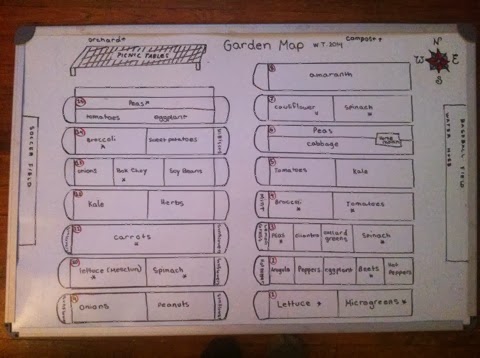 orchard↑
compost↑
Garden Map W.T. 2014
PICNIC TABLES
N
W E
S
SOCCER FIELD
BASEBALL FIELD
WATER HOSE
Peas*
tomatoes eggplant
Broccoli * sweet potatoes
onions Bok Choy * Soy Beans
Kale Herbs
carrots *
lettuce (Mesclun) Spinach *
Onions Peanuts
8
amaranth
7
cauliflower * Spinach *
6
Peas
cabbage
5
Tomatoes Kale
MINT
4
Broccoli * Tomatoes *
3
Peas * cilantro collard greens Spinach *
2
Peppers eggplant Beets * Hot Peppers
1
Lettuce * Microgreens *